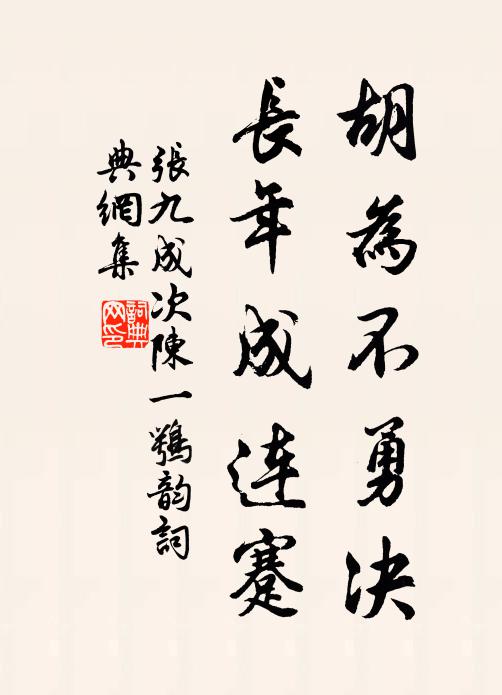 胡為不勇决
長年成连蹇
張九成次陳一鶚韵詞
典網集
詞典网印